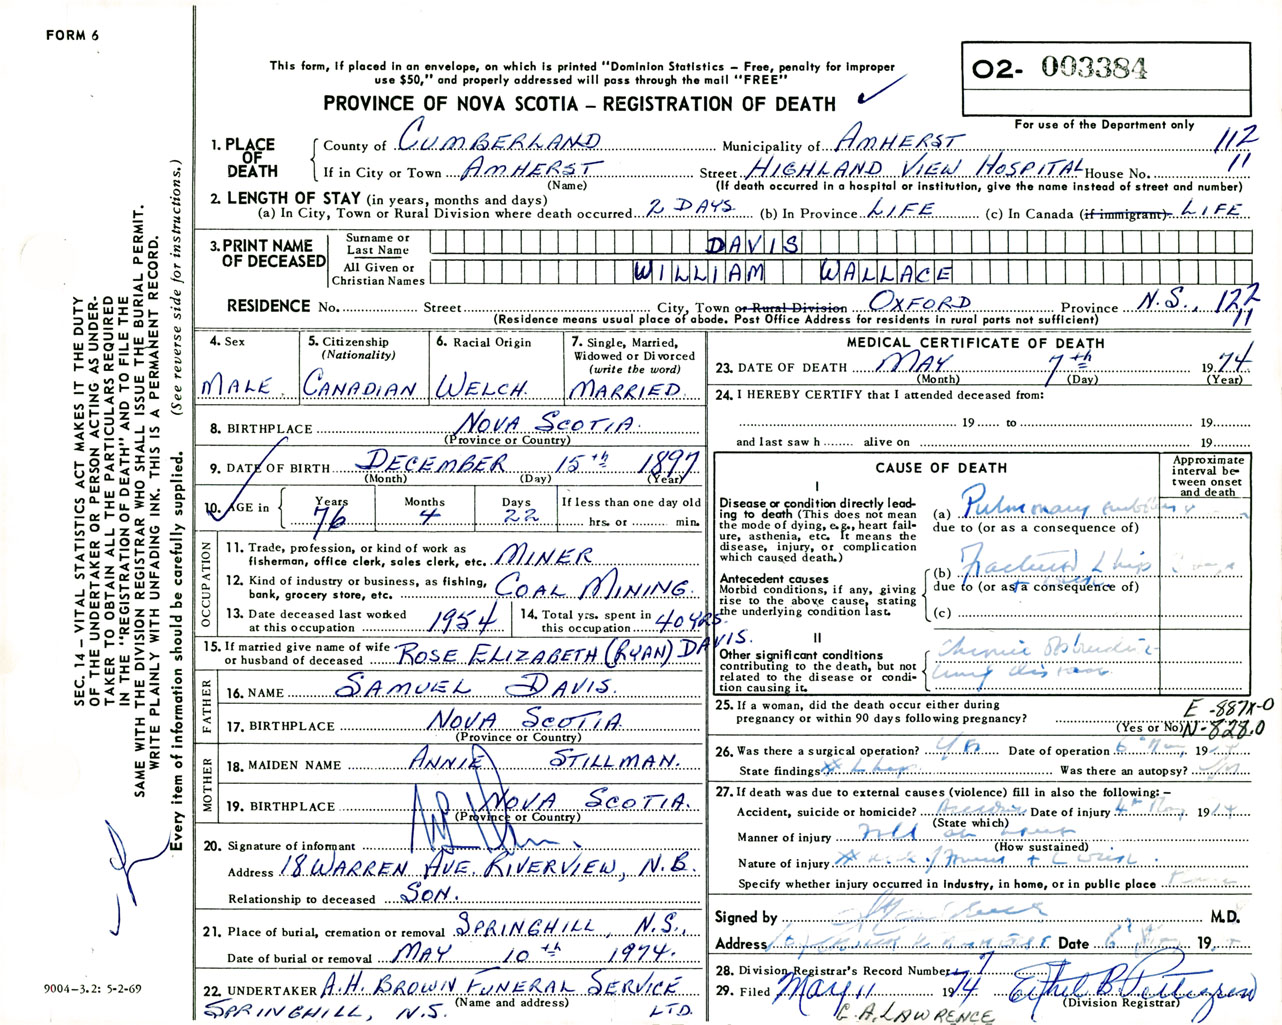 FORM 6
This form, if placed in an envelope, on which is printed "Dominion Statistics – Free, penalty for improper
use $50," and properly addressed will pass through the mail "FREE"
PROVINCE OF NOVA SCOTIA – REGISTRATION OF DEATH
02- 003384
For use of the Department only
1. PLACE OF DEATH
County of CUMBERLAND Municipality of AMHERST 112
If in City or Town AMHERST Street HIGHLAND VIEW HOSPITAL House No. 11
(Name) (If death occurred in a hospital or institution, give the name instead of street and number)
2. LENGTH OF STAY (in years, months and days)
(a) In City, Town or Rural Division where death occurred 2 DAYS (b) In Province LIFE (c) In Canada (if immigrant) LIFE
3. PRINT NAME OF DECEASED
Surname or Last Name DAVIS
All Given or Christian Names WILLIAM WALLACE
RESIDENCE No. Street City, Town or Rural Division OXFORD Province N.S., 122
11
(Residence means usual place of abode. Post Office Address for residents in rural parts not sufficient)
4. Sex
MALE
5. Citizenship
(Nationality)
CANADIAN
6. Racial Origin
WELCH
7. Single, Married,
Widowed or Divorced
(write the word)
MARRIED
8. BIRTHPLACE NOVA SCOTIA
(Province or Country)
9. DATE OF BIRTH DECEMBER 15th 1897
(Month) (Day) (Year)
10. AGE in
Years 76
Months 4
Days 22
If less than one day old
hrs. or min.
OCCUPATION
11. Trade, profession, or kind of work as
fisherman, office clerk, sales clerk, etc. MINER
12. Kind of industry or business, as fishing,
bank, grocery store, etc. COAL MINING.
13. Date deceased last worked
at this occupation 1954
14. Total yrs. spent in
this occupation 40 YRS.
15. If married give name of wife
or husband of deceased ROSE ELIZABETH (RYAN) DAVIS.
FATHER
16. NAME SAMUEL DAVIS.
17. BIRTHPLACE NOVA SCOTIA
(Province or Country)
MOTHER
18. MAIDEN NAME ANNIE STILLMAN.
19. BIRTHPLACE NOVA SCOTIA.
(Province or Country)
20. Signature of informant
Address 18 WARREN AVE. RIVERVIEW, N.B.
Relationship to deceased SON.
21. Place of burial, cremation or removal SPRINGHILL, N.S.,
Date of burial or removal MAY 10th 1974.
22. UNDERTAKER A.H. BROWN FUNERAL SERVICE
(Name and address)
SPRINGHILL, N.S. LTD.
MEDICAL CERTIFICATE OF DEATH
23. DATE OF DEATH MAY 7th 1974
(Month) (Day) (Year)
24. I HEREBY CERTIFY that I attended deceased from:
19 to 19
and last saw h alive on 19
CAUSE OF DEATH
Approximate
interval be-
tween onset
and death
I
Disease or condition directly lead-
ing to death (This does not mean
the mode of dying, e.g., heart fail-
ure, asthenia, etc. It means the
disease, injury, or complication
which caused death.)
(a) Pulmonary
due to (or as a consequence of)
Antecedent causes
Morbid conditions, if any, giving
rise to the above cause, stating
the underlying condition last.
(b) Fractured L hip
due to (or as a consequence of)
(c)
II
Other significant conditions
contributing to the death, but not
related to the disease or condi-
tion causing it.
Chronic obstructive
lung disease
25. If a woman, did the death occur either during
pregnancy or within 90 days following pregnancy?
(Yes or No)
E-887X-0
N-828.0
26. Was there a surgical operation? yes Date of operation 6th May 1974
State findings # L hip Was there an autopsy?
27. If death was due to external causes (violence) fill in also the following: –
Accident, suicide or homicide? Accident Date of injury 4th May 1974
(State which)
Manner of injury
(How sustained)
Nature of injury
Specify whether injury occurred in industry, in home, or in public place
Signed by M.D.
Address Date 19
28. Division Registrar's Record Number 7
29. Filed May 11 1974 Ethel B. Pettigrew
(Division Registrar)
C.A. LAWRENCE
SEC. 14 – VITAL STATISTICS ACT MAKES IT THE DUTY
OF THE UNDERTAKER OR PERSON ACTING AS UNDER-
TAKER TO OBTAIN ALL THE PARTICULARS REQUIRED
IN THE "REGISTRATION OF DEATH" AND TO FILE THE
SAME WITH THE DIVISION REGISTRAR WHO SHALL ISSUE THE BURIAL PERMIT.
WRITE PLAINLY WITH UNFADING INK. THIS IS A PERMANENT RECORD.
Every item of information should be carefully supplied. (See reverse side for instructions.)
9004–3.2: 5-2-69